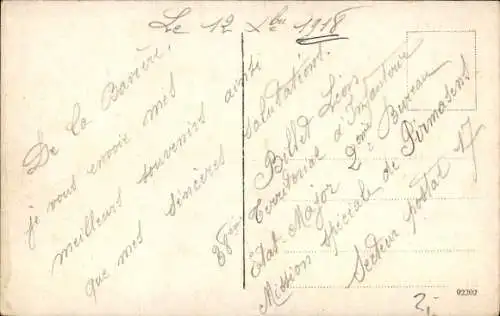 Le 12 Xbre 1918
De la Bavière,
je vous envoie mes
meilleurs souvenirs ainsi
que mes sincères
salutations.
Billet Léon
Territorial d'Infanterie
État-Major 2ème Bureau
Mission spéciale de Pirmasens
Secteur postal 17
92202
2,-